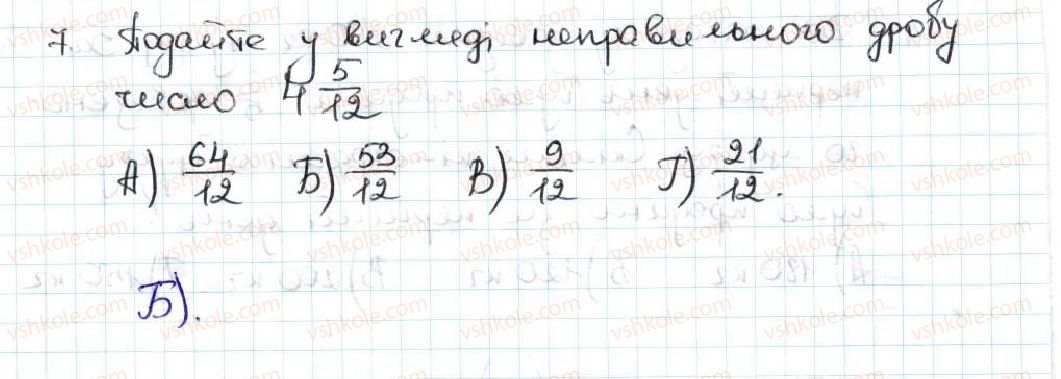 7. Подайте у вигляді неправильного дробу
число 4 5/12
А) 64/12 Б) 53/12 В) 9/12 Г) 21/12.
Б).
vshkole.com